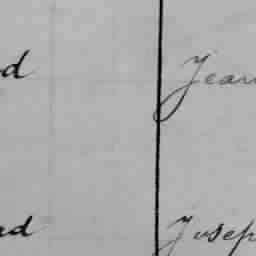 d Jean
ad Joseph